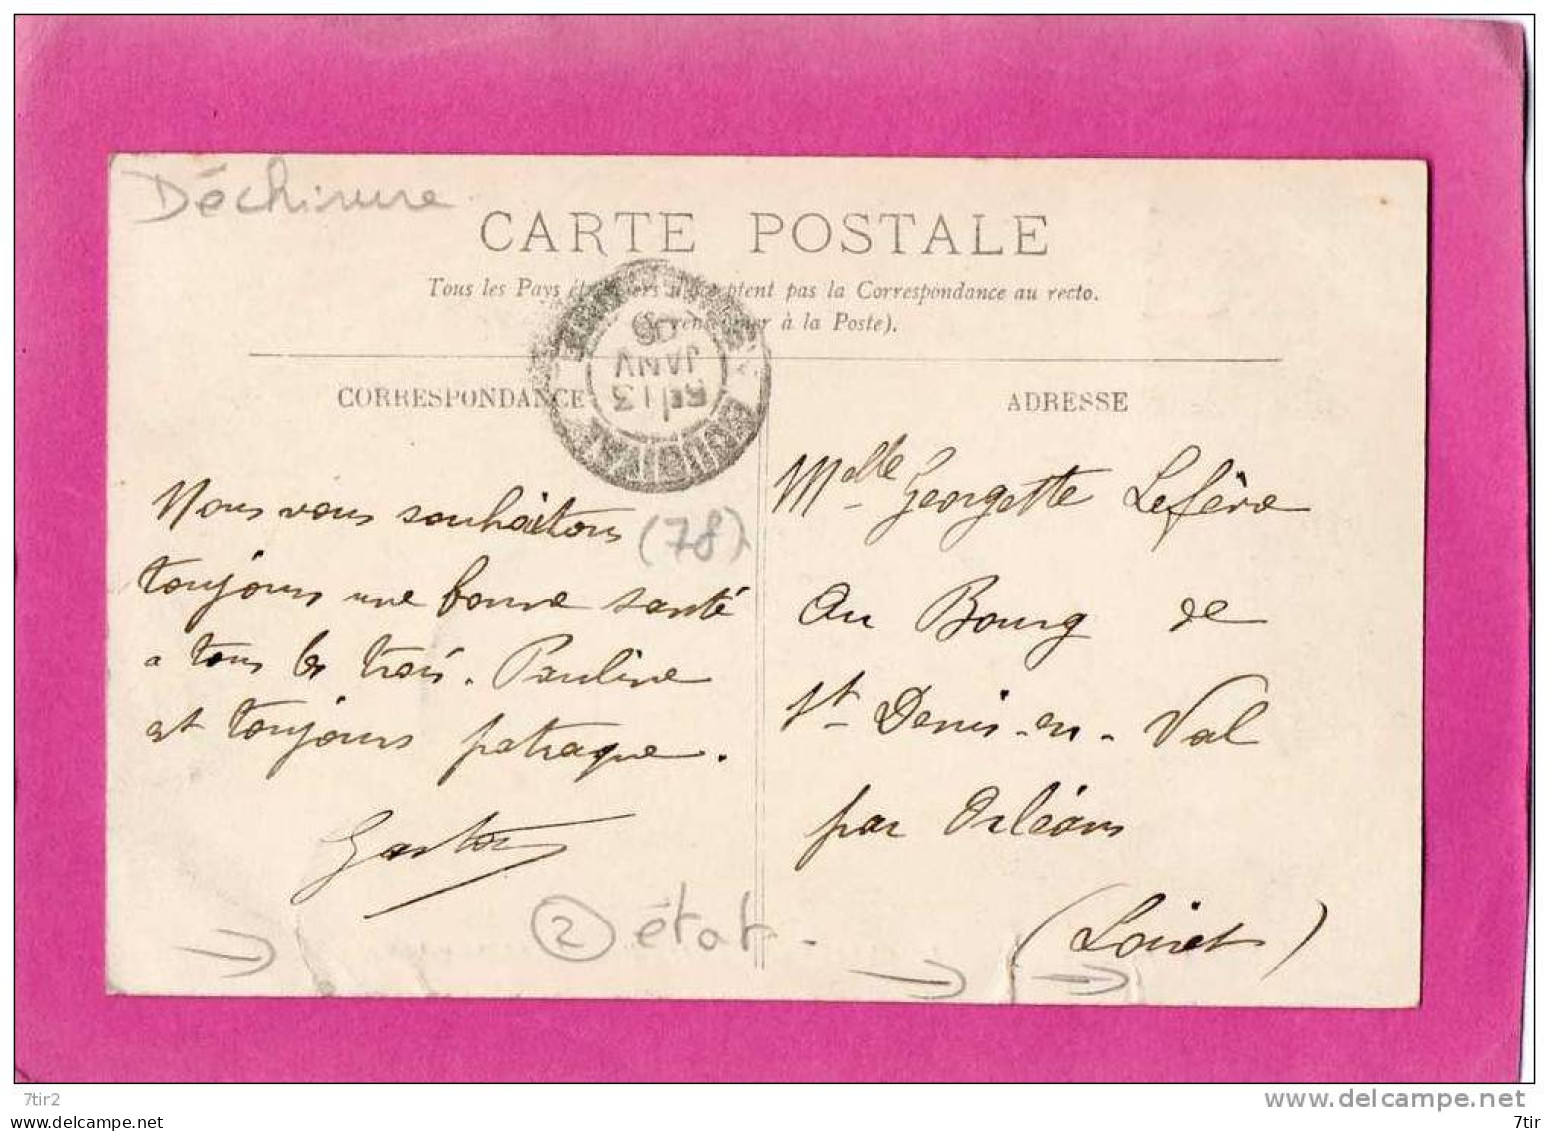 Déchirure
CARTE POSTALE
Tous les Pays étrangers n'acceptent pas la Correspondance au recto.
(Se renseigner à la Poste).
13
JANV
09
BOUGIVAL
CORRESPONDANCE
Nous vous souhaitons
toujours une bonne santé
a tous les trois. Pauline
est toujours patraque.
Gaston
(78)
② état
ADRESSE
Melle Georgette Lefève
Au Bourg de
St Denis-en-Val
par Orléans
(Loiret)
7tir2
www.delcampe.net
7tir
7tir